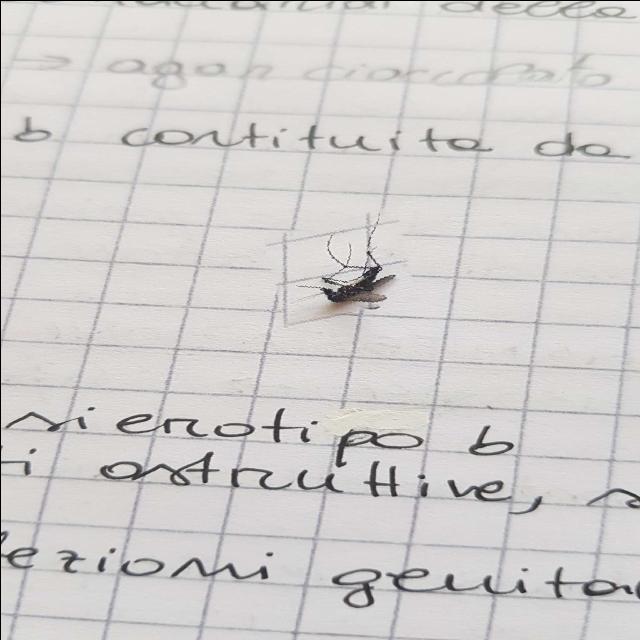 della
→ agar cioccolato
b costituita da
sierotipo b
i ostruttive, s
ezioni genita